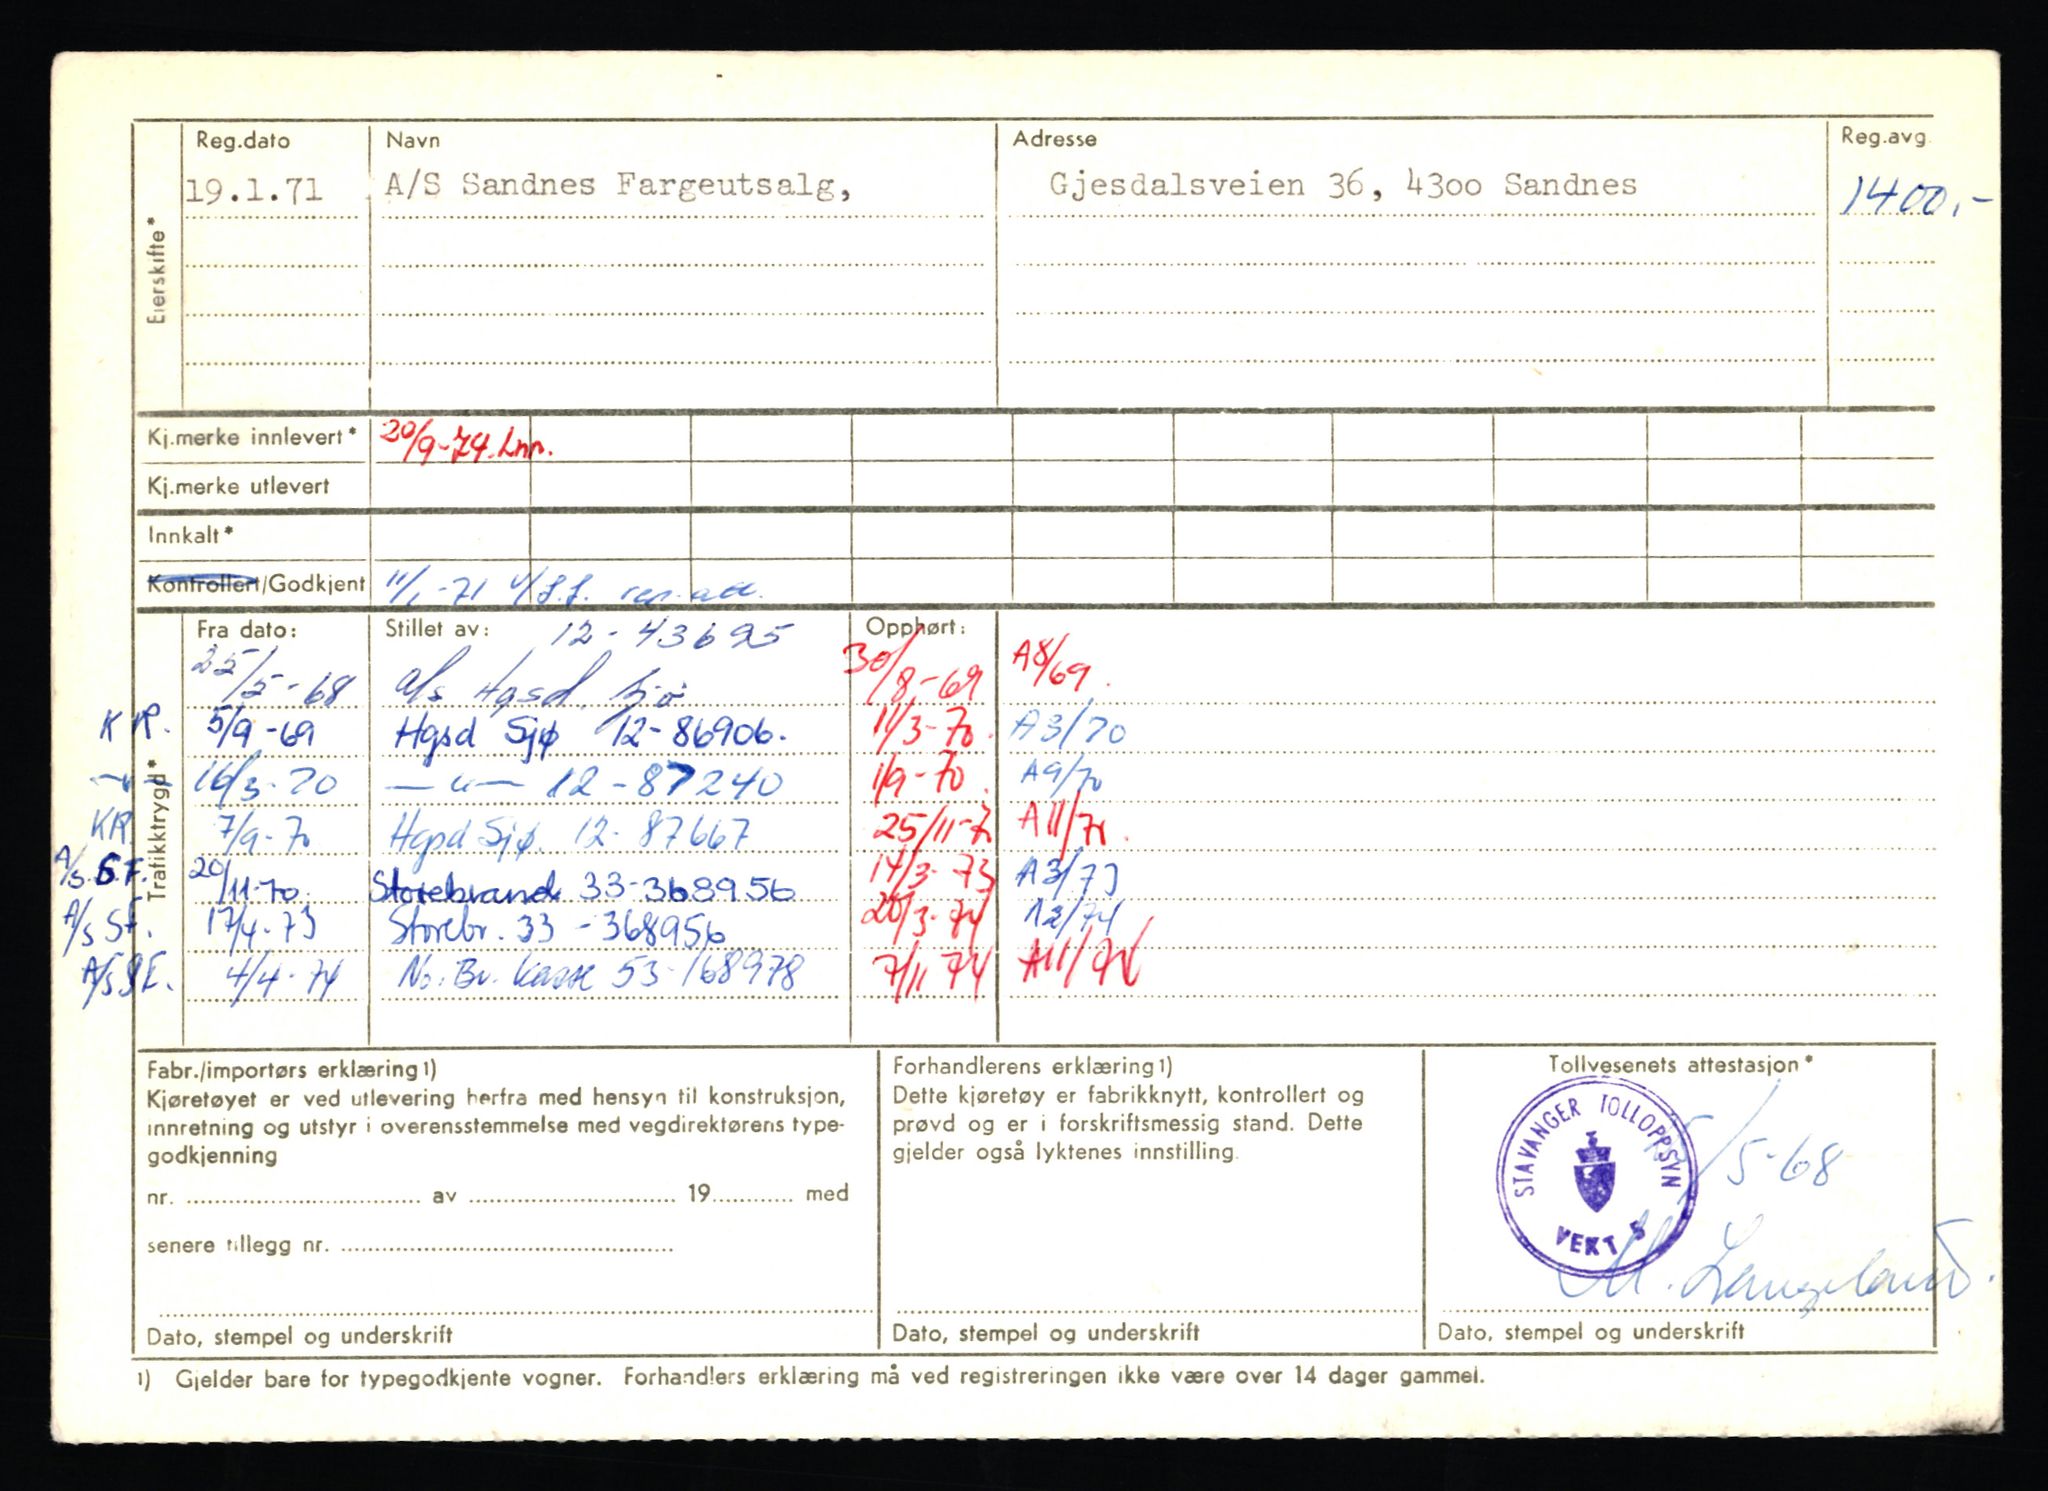 Reg.dato Navn Adresse Reg.avg.
19.1.71 A/S Sandnes Fargeutsalg, Gjesdalsveien 36, 4300 Sandnes 1400,-
Eierskifte*
Kj.merke innlevert* 20/9-74. Inn.
Kj.merke utlevert
Innkalt*
Kontrollert/Godkjent 11/1-71
Trafikktrygd*
Fra dato: Stillet av: 12-43695 Opphørt:
25/5-68 a/s Hgsd. Sjø 30/8-69 A8/69.
KR. 5/9-69 Hgsd Sjø 12-86906. 11/3-70. A3/70
—"— 16/3-70 —"— 12-87240 1/9-70. A9/70
KR 7/9-70 Hgsd Sjø. 12-87667 25/11-70 A11/70.
A/S S.F. 20/11-70. Storebrand 33-368956 14/3-73 A3/73
A/S SF. 17/4-73 Storebr. 33-368956 20/3-74 A3/74
4/4-74 No. Br. Kasse 53-168978 7/11 74 A11/74
Fabr./importørs erklæring 1)
Kjøretøyet er ved utlevering herfra med hensyn til konstruksjon,
innretning og utstyr i overensstemmelse med vegdirektørens type-
godkjenning
nr. av 19 med
senere tillegg nr.
Dato, stempel og underskrift
Forhandlerens erklæring 1)
Dette kjøretøy er fabrikknytt, kontrollert og
prøvd og er i forskriftsmessig stand. Dette
gjelder også lyktenes innstilling.
Dato, stempel og underskrift
Tollvesenets attestasjon*
STAVANGER TOLLOPPSYN
VEKT 5
/5-68
M. Langeland.
Dato, stempel og underskrift
1) Gjelder bare for typegodkjente vogner. Forhandlers erklæring må ved registreringen ikke være over 14 dager gammel.